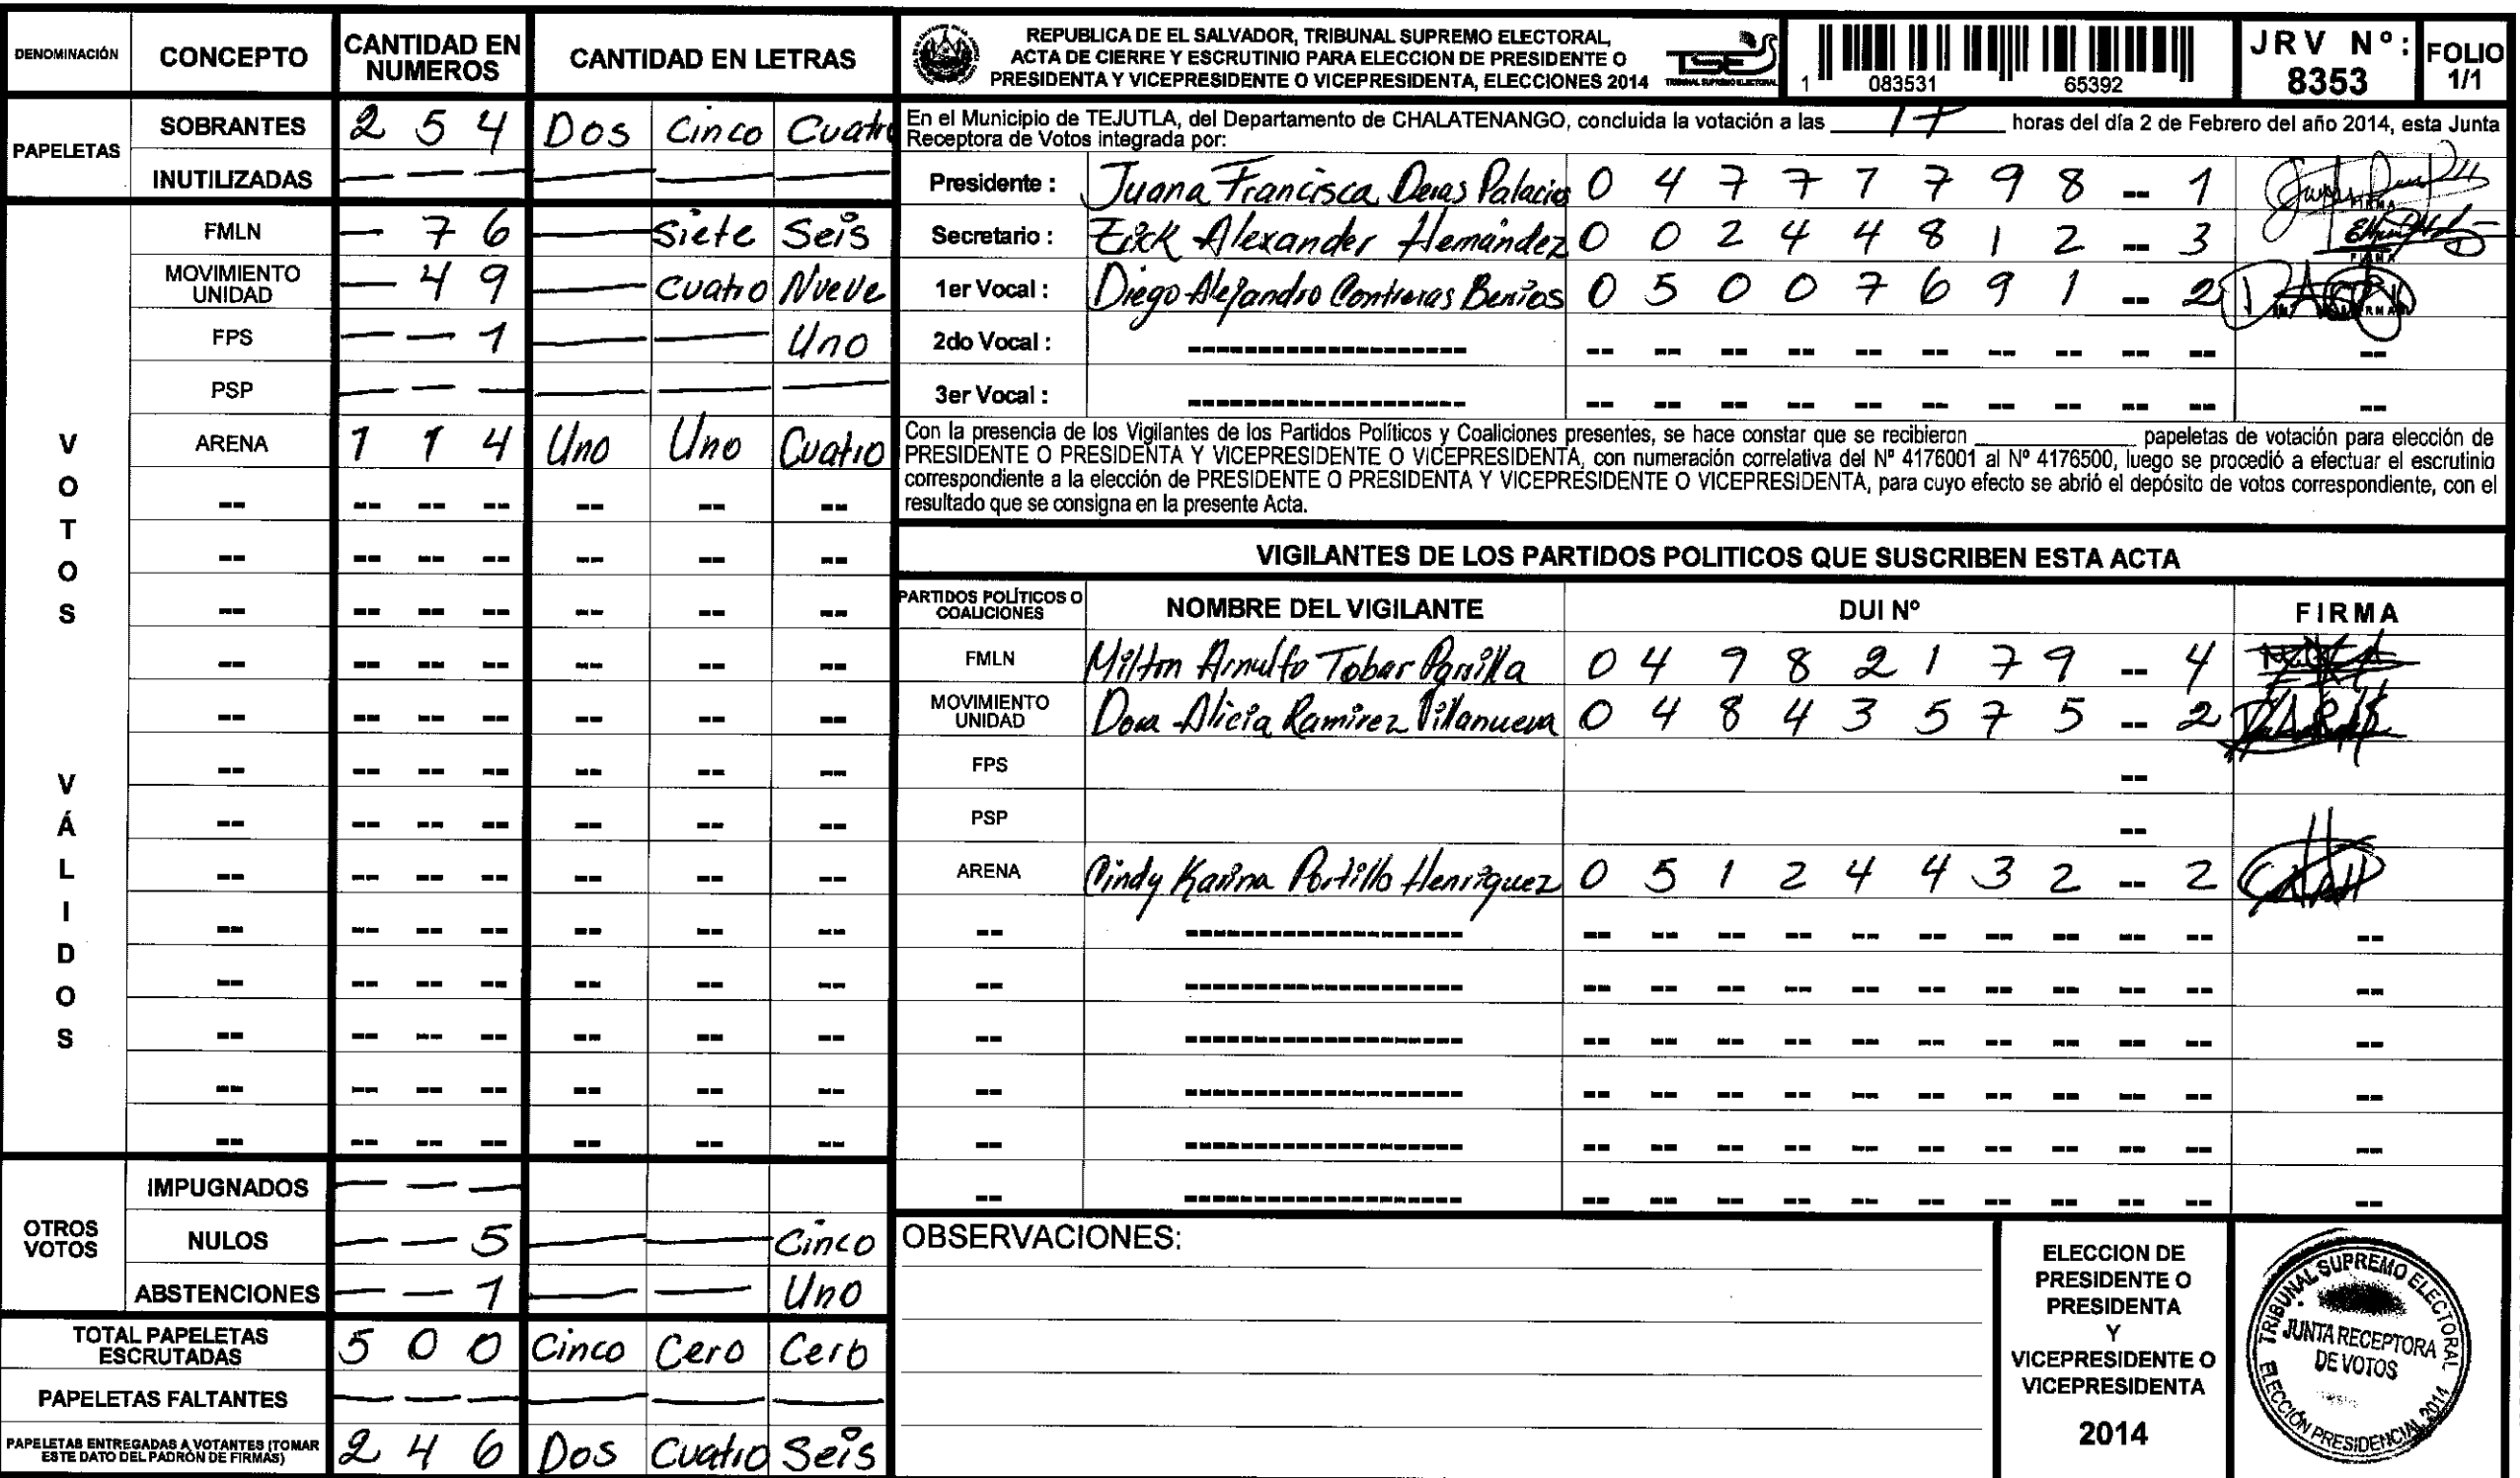 DENOMINACIÓN CONCEPTO CANTIDAD EN NUMEROS CANTIDAD EN LETRAS
PAPELETAS
SOBRANTES 2 5 4 Dos Cinco Cuatro
INUTILIZADAS — — — — — —
VOTOS VÁLIDOS
FMLN — 7 6 — Siete Seis
MOVIMIENTO UNIDAD — 4 9 — Cuatro Nueve
FPS — — 1 — — Uno
PSP — — — — — —
ARENA 1 1 4 Uno Uno Cuatro
-- -- -- -- -- -- --
-- -- -- -- -- -- --
-- -- -- -- -- -- --
-- -- -- -- -- -- --
-- -- -- -- -- -- --
-- -- -- -- -- -- --
-- -- -- -- -- -- --
-- -- -- -- -- -- --
-- -- -- -- -- -- --
-- -- -- -- -- -- --
-- -- -- -- -- -- --
-- -- -- -- -- -- --
-- -- -- -- -- -- --
OTROS VOTOS
IMPUGNADOS — — —
NULOS — — 5 — — Cinco
ABSTENCIONES — — 1 — — Uno
TOTAL PAPELETAS ESCRUTADAS 5 0 0 Cinco Cero Cero
PAPELETAS FALTANTES — — — — — —
PAPELETAS ENTREGADAS A VOTANTES (TOMAR ESTE DATO DEL PADRÓN DE FIRMAS) 2 4 6 Dos Cuatro Seis
REPUBLICA DE EL SALVADOR, TRIBUNAL SUPREMO ELECTORAL,
ACTA DE CIERRE Y ESCRUTINIO PARA ELECCION DE PRESIDENTE O
PRESIDENTA Y VICEPRESIDENTE O VICEPRESIDENTA, ELECCIONES 2014
TSE
TRIBUNAL SUPREMO ELECTORAL
1 083531 65392
JRV Nº: 8353
FOLIO 1/1
En el Municipio de TEJUTLA, del Departamento de CHALATENANGO, concluida la votación a las 17 horas del día 2 de Febrero del año 2014, esta Junta
Receptora de Votos integrada por:
Presidente : Juana Francisca Deras Palacios 0 4 7 7 7 7 9 8 -- 1
FIRMA
Secretario : Erick Alexander Hernández 0 0 2 4 4 8 1 2 -- 3
FIRMA
1er Vocal : Diego Alejandro Contreras Berríos 0 5 0 0 7 6 9 1 -- 2
2do Vocal : -------------------- -- -- -- -- -- -- -- -- -- -- --
3er Vocal : -------------------- -- -- -- -- -- -- -- -- -- -- --
Con la presencia de los Vigilantes de los Partidos Políticos y Coaliciones presentes, se hace constar que se recibieron ____________ papeletas de votación para elección de
PRESIDENTE O PRESIDENTA Y VICEPRESIDENTE O VICEPRESIDENTA, con numeración correlativa del Nº 4176001 al Nº 4176500, luego se procedió a efectuar el escrutinio
correspondiente a la elección de PRESIDENTE O PRESIDENTA Y VICEPRESIDENTE O VICEPRESIDENTA, para cuyo efecto se abrió el depósito de votos correspondiente, con el
resultado que se consigna en la presente Acta.
VIGILANTES DE LOS PARTIDOS POLITICOS QUE SUSCRIBEN ESTA ACTA
PARTIDOS POLÍTICOS O COALICIONES NOMBRE DEL VIGILANTE DUI Nº FIRMA
FMLN Milton Arnulfo Tobar 0 4 9 8 2 1 7 9 -- 4
MOVIMIENTO UNIDAD Dora Alicia Ramirez Villanueva 0 4 8 4 3 5 7 5 -- 2
FPS --
PSP --
ARENA Cindy Karina Portillo Henríquez 0 5 1 2 4 4 3 2 -- 2
-- -------------------- -- -- -- -- -- -- -- -- -- -- --
-- -------------------- -- -- -- -- -- -- -- -- -- -- --
-- -------------------- -- -- -- -- -- -- -- -- -- -- --
-- -------------------- -- -- -- -- -- -- -- -- -- -- --
-- -------------------- -- -- -- -- -- -- -- -- -- -- --
-- -------------------- -- -- -- -- -- -- -- -- -- -- --
OBSERVACIONES:
ELECCION DE
PRESIDENTE O
PRESIDENTA
Y
VICEPRESIDENTE O
VICEPRESIDENTA
2014
TRIBUNAL SUPREMO ELECTORAL
JUNTA RECEPTORA
DE VOTOS
ELECCIÓN PRESIDENCIAL 2014